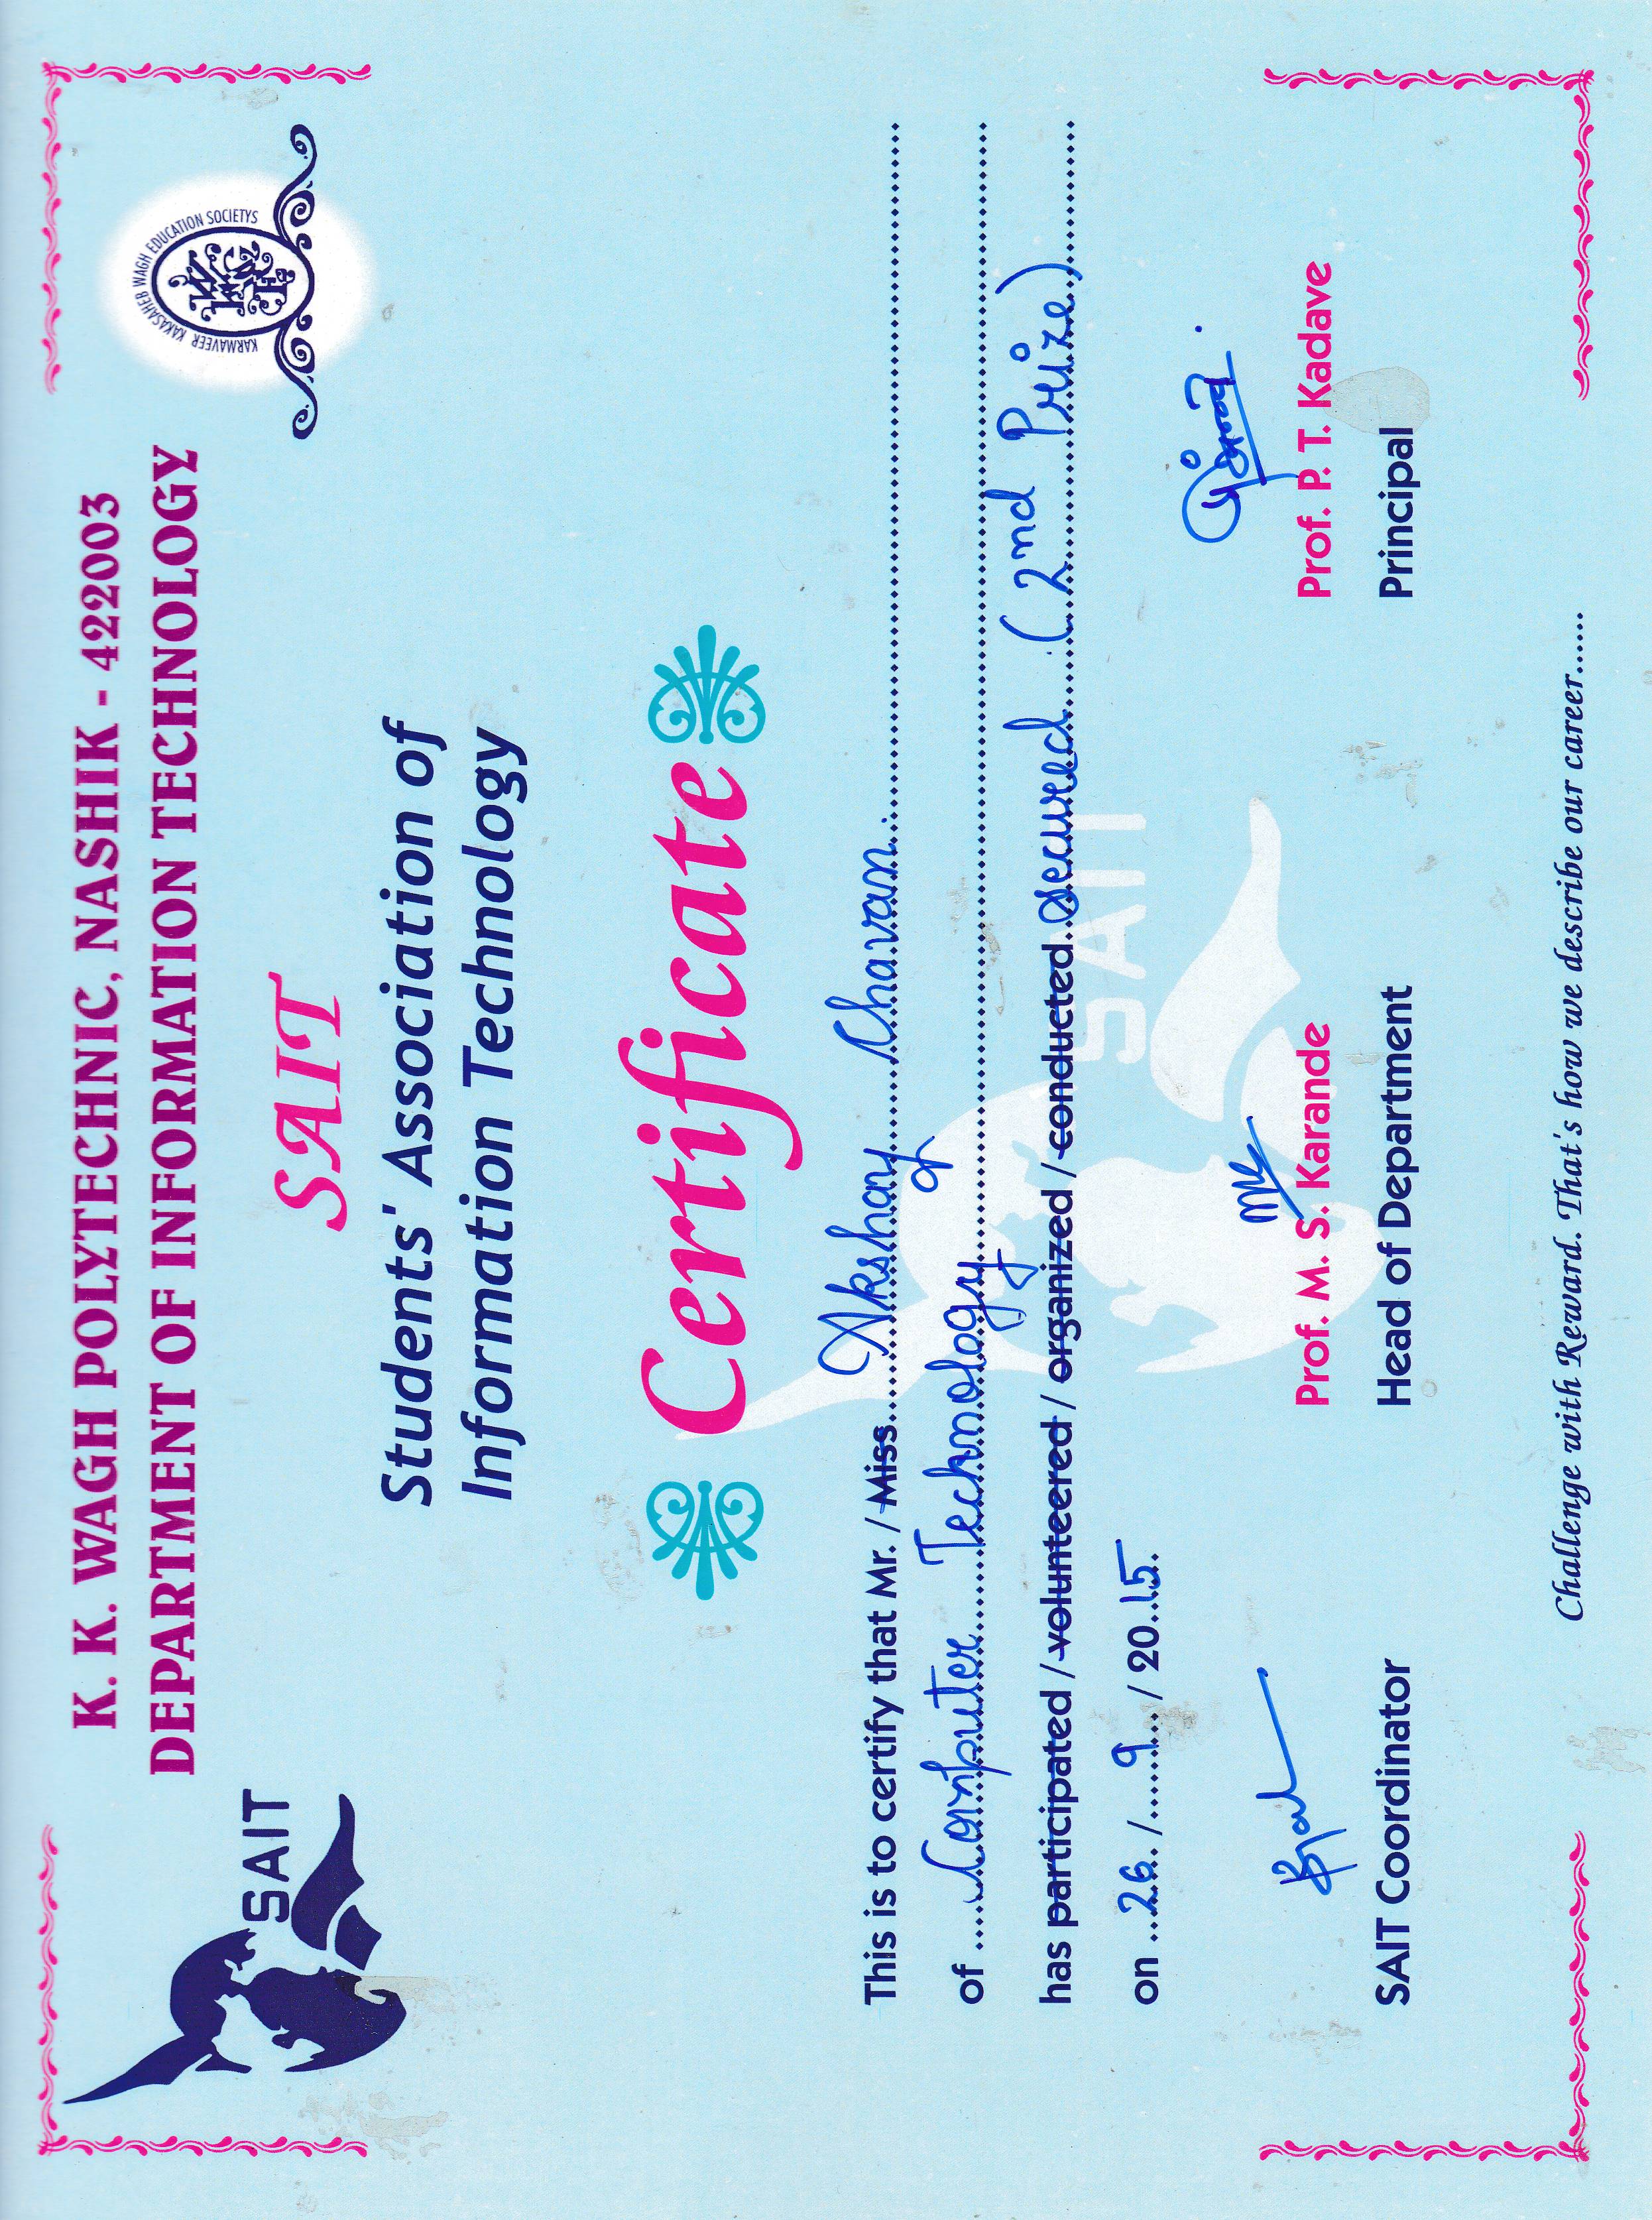 K. K. WAGH POLYTECHNIC, NASHIK - 422003
DEPARTMENT OF INFORMATION TECHNOLOGY
SAIT
KARMAVEER KAKASAHEB WAGH EDUCATION SOCIETYS
SAIT
Students' Association of
Information Technology
Certificate
This is to certify that Mr. / Miss Akshay Chavan
of Computer Technology
has participated / volunteered / organized / conducted secured (2nd Prize)
on 26 / 9 / 2015
SAIT
Prof. M. S. Karande
Prof. P. T. Kadave
SAIT Coordinator
Head of Department
Principal
Challenge with Reward. That's how we describe our career......